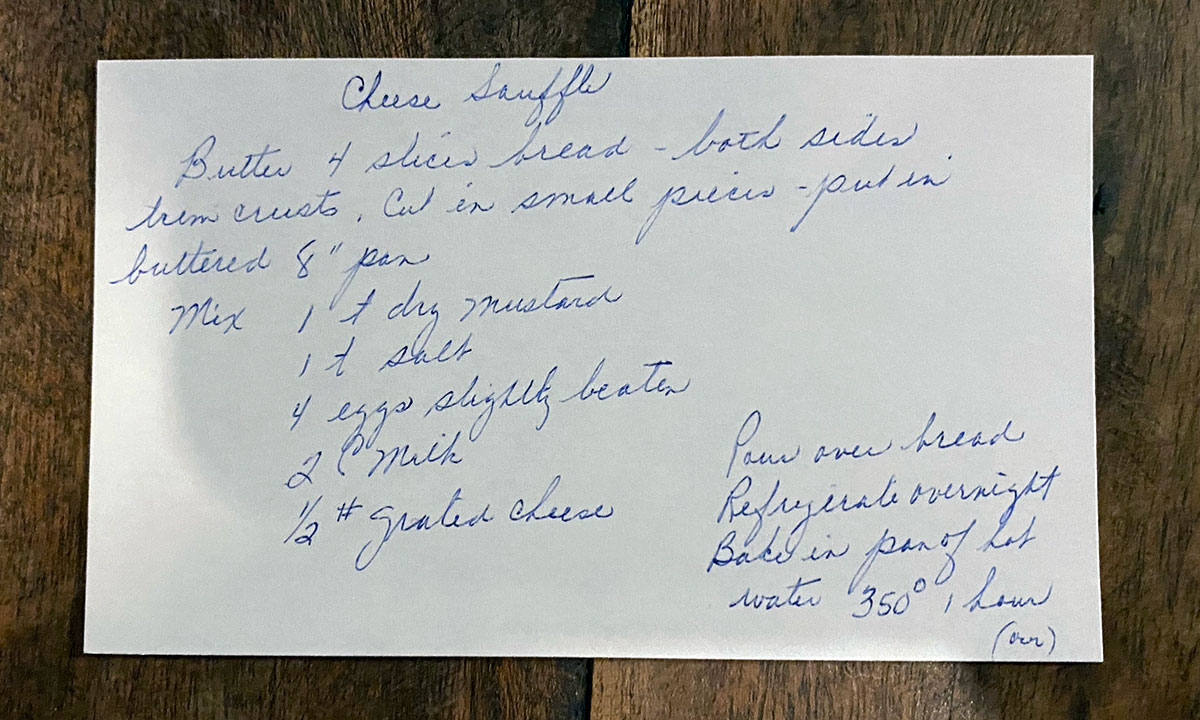 Cheese Souffle
Butter 4 slices bread - both sides
trim crusts. Cut in small pieces - put in
buttered 8" pan
Mix 1 t dry mustard
1 t salt
4 eggs slightly beaten
2 C Milk
1/2 # grated cheese
Pour over bread
Refrigerate overnight
Bake in pan of hot
water 350° 1 hour
(over)